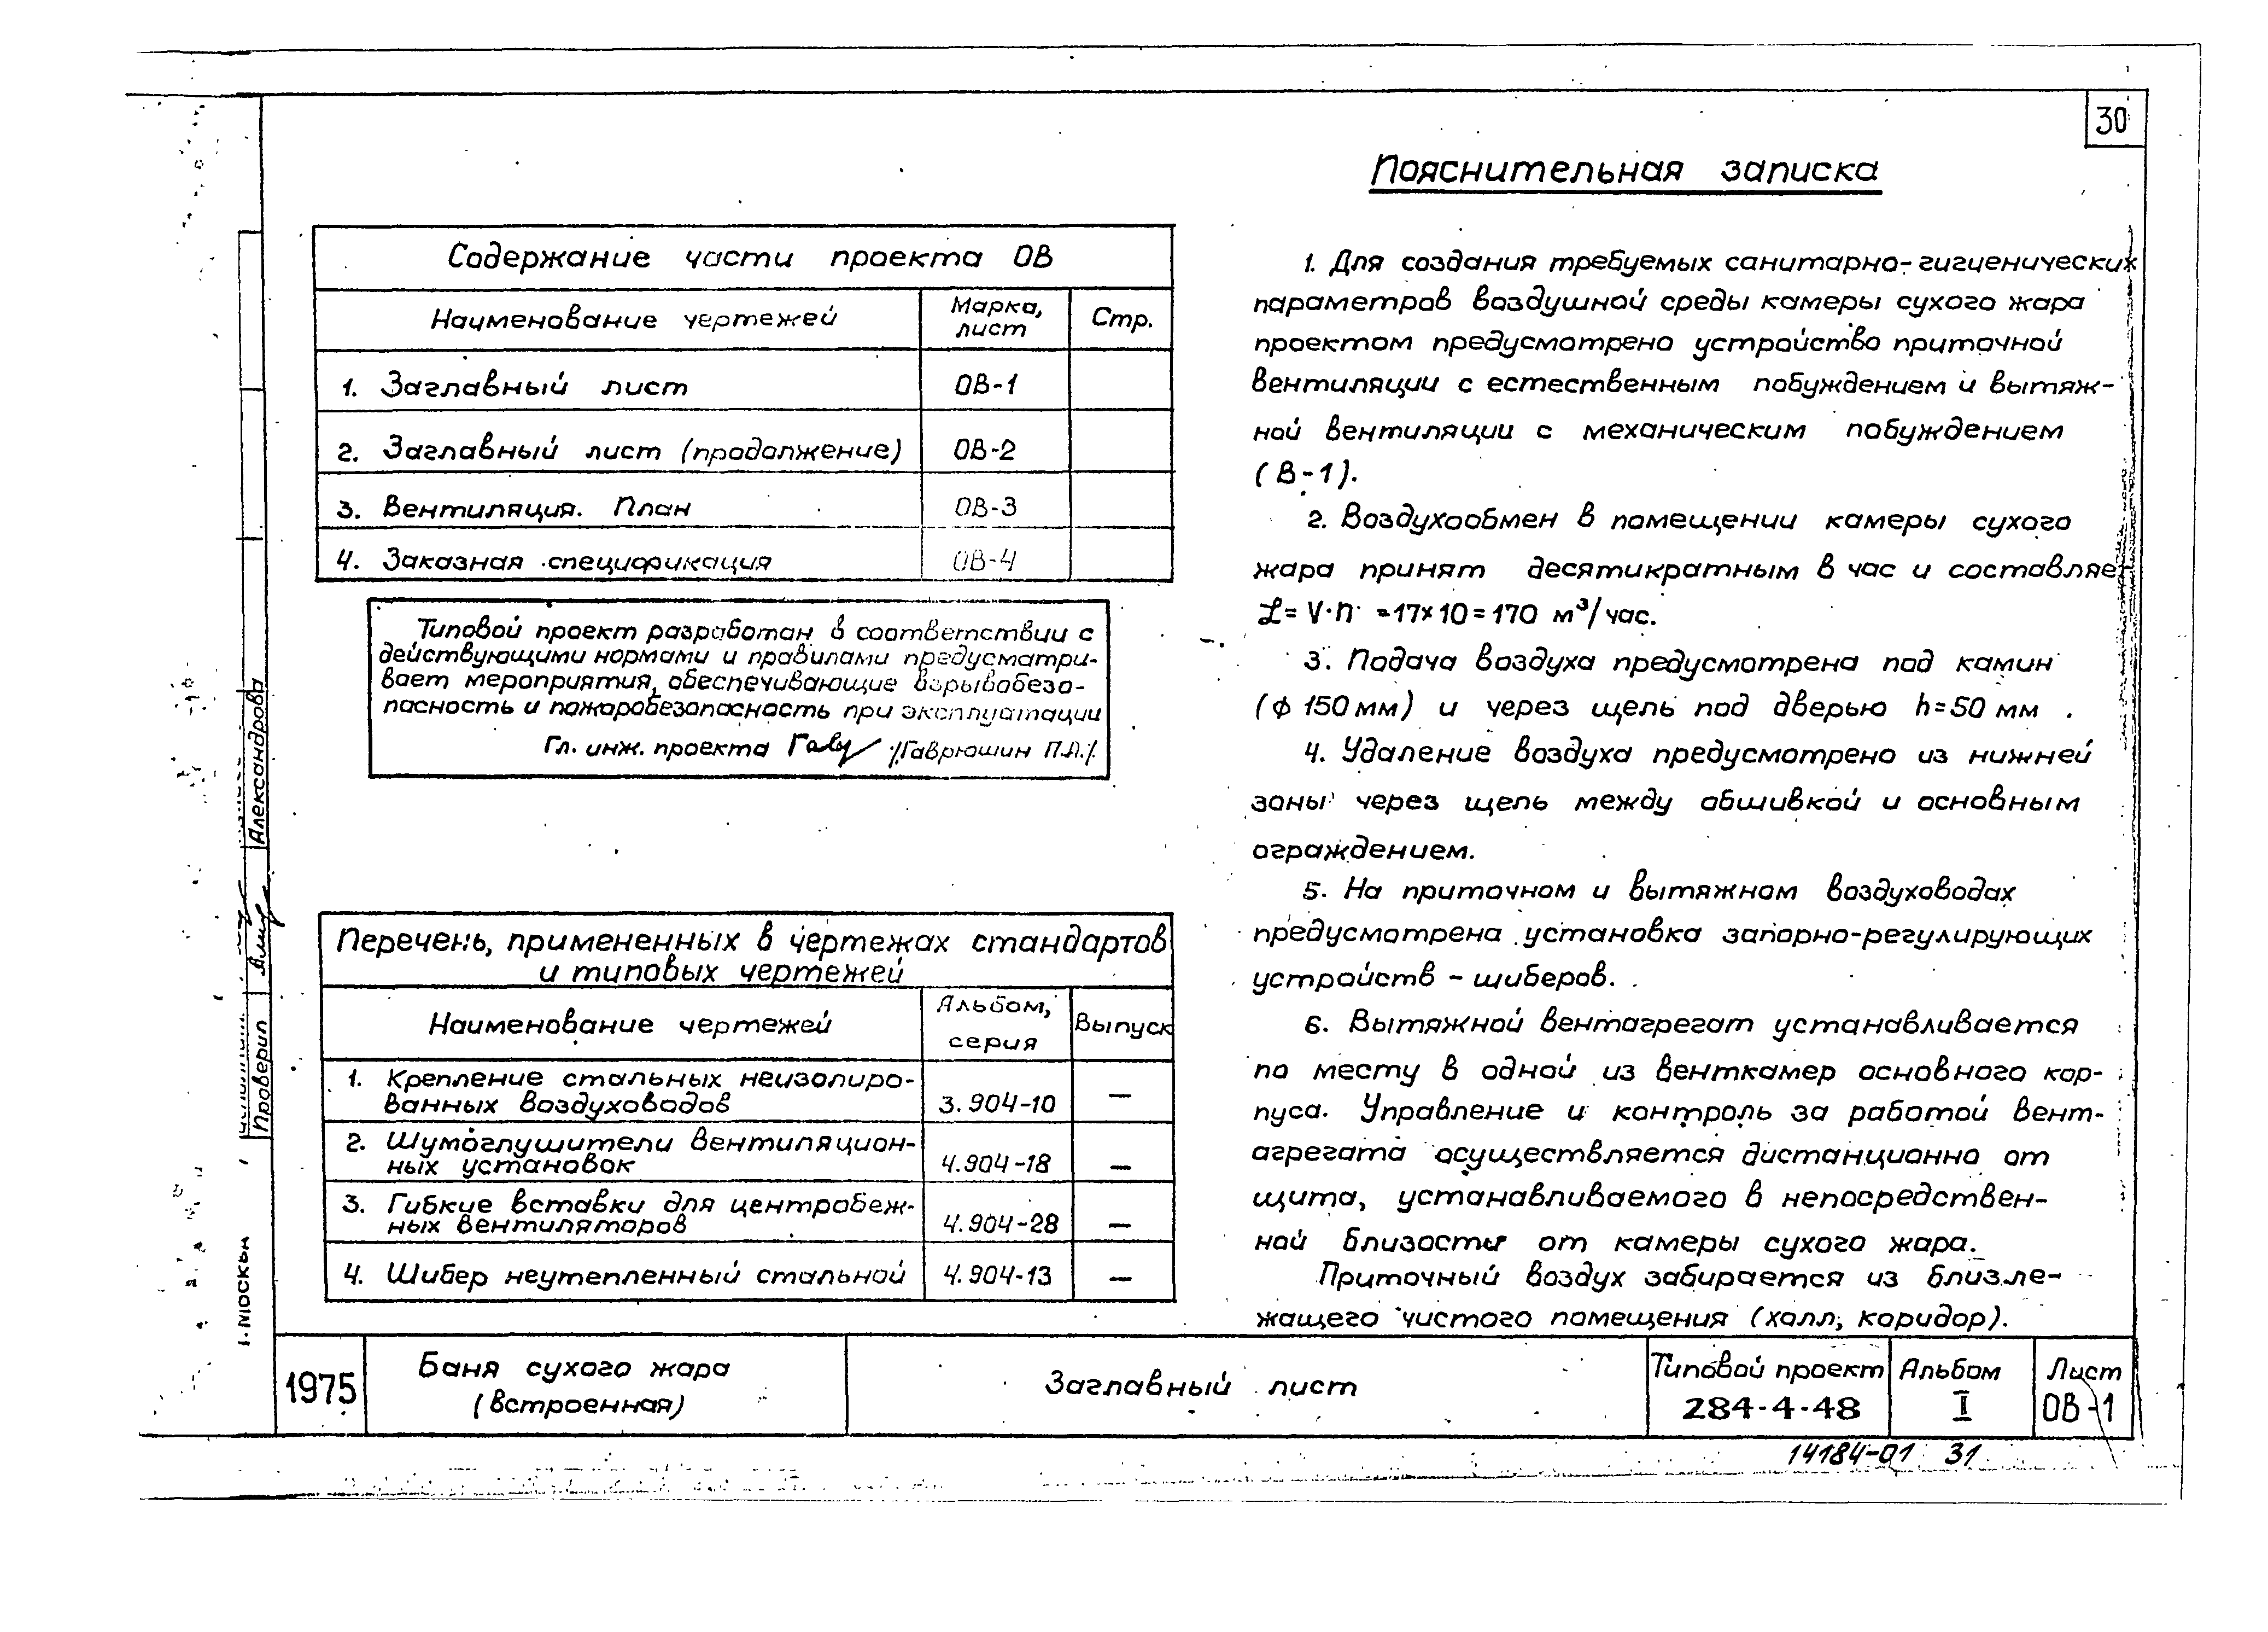 30
Содержание части проекта ОВ
Наименование чертежей
Марка, лист
Стр.
1. Заглавный лист ОВ-1
2. Заглавный лист (продолжение) ОВ-2
3. Вентиляция. План ОВ-3
4. Заказная спецификация ОВ-4
Типовой проект разработан в соответствии с
действующими нормами и правилами предусматри-
вает мероприятия, обеспечивающие взрывобезо-
пасность и пожаробезопасность при эксплуатации
Гл. инж. проекта /Гаврюшин П.А./
Перечень, примененных в чертежах стандартов
и типовых чертежей
Наименование чертежей
Альбом,
серия
Выпуск
1. Крепление стальных неизолиро-
ванных воздуховодов 3.904-10 —
2. Шумоглушители вентиляцион-
ных установок 4.904-18 —
3. Гибкие вставки для центробеж-
ных вентиляторов 4.904-28 —
4. Шибер неутепленный стальной 4.904-13 —
Пояснительная записка
1. Для создания требуемых санитарно-гигиенических
параметров воздушной среды камеры сухого жара
проектом предусмотрено устройство приточной
вентиляции с естественным побуждением и вытяж-
ной вентиляции с механическим побуждением
(В-1).
2. Воздухообмен в помещении камеры сухого
жара принят десятикратным в час и составляет
L= V·n =17×10=170 м³/час.
3. Подача воздуха предусмотрена под камин
(ф 150 мм) и через щель под дверью h=50 мм.
4. Удаление воздуха предусмотрено из нижней
зоны через щель между обшивкой и основным
ограждением.
5. На приточном и вытяжном воздуховодах
предусмотрена установка запорно-регулирующих
устройств - шиберов.
6. Вытяжной вентагрегат устанавливается
по месту в одной из венткамер основного кор-
пуса. Управление и контроль за работой вент-
агрегата осуществляется дистанционно от
щита, устанавливаемого в непосредствен-
ной близости от камеры сухого жара.
Приточный воздух забирается из близле-
жащего чистого помещения (холл, коридор).
Александрова
Проверил
г. Москва
1975
Баня сухого жара
(встроенная)
Заглавный лист
Типовой проект
284-4-48
Альбом
I
Лист
ОВ-1
14184-01 31